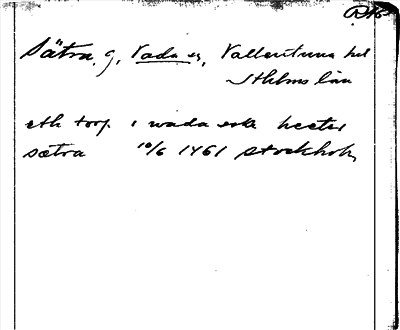 RAp
Sätra, g, Vada sn, Vallentuna hd
Sthlms län
eth torp i wada sokn heeter
sætra 10/6 1461 Stockholm